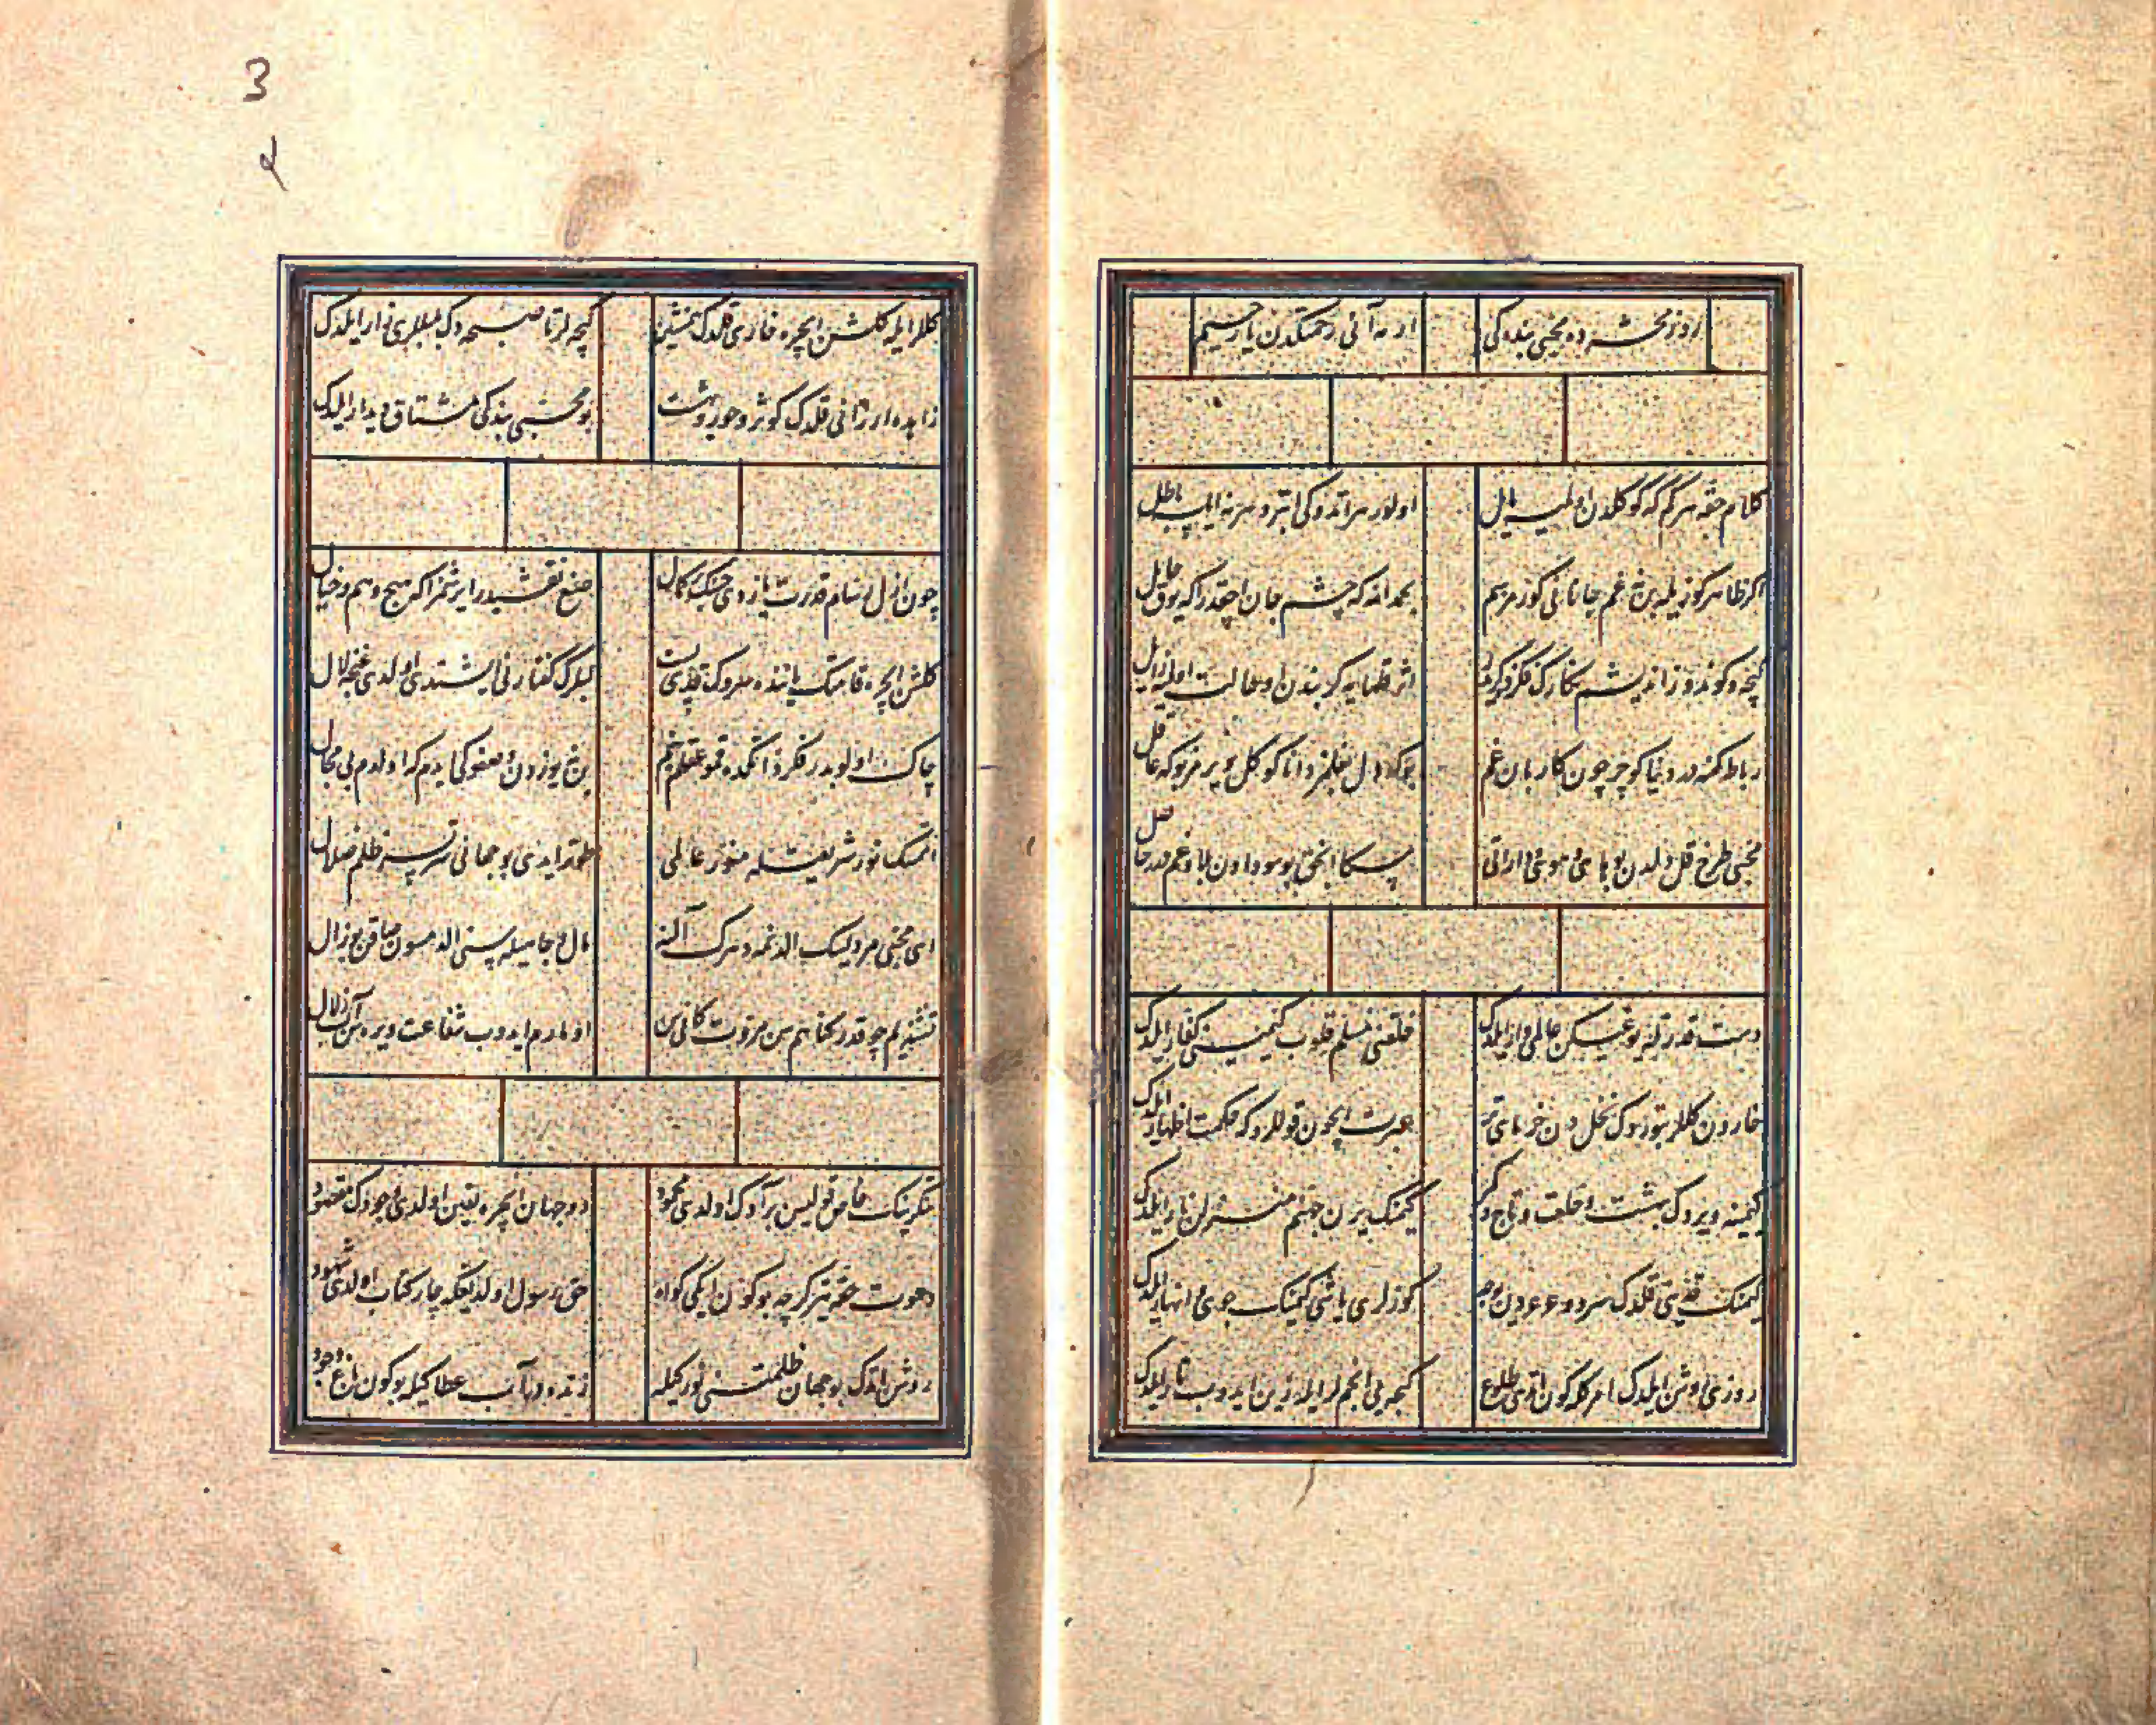 روز محشرده محبّی بنده کی
ایرمه آنی رحمتکدن یا رحیم
کلام حقّه هر کم که کوکلدن اولمیه مایل
اولور هر اتدوکی ابتر و هر نه ایلیه باطل
اکر ظاهر کوزیله بن غم جانانی کورمزسم
بحمد الله که چشم جان اچقدر اکه یوق حایل
کیجه و کوندوز اندیشم نکارک فکر
اثر قلمایه کر بندن اوحالت اولمیه زایل
رباط کهنه در دنیا کوچر چون کاربان غم
بوکا دل بغلمز دانا کوکل ویرمز بوکه عاقل
محبّی طرح قل دلدن بو های و هوی
سکا انجق بو سودادن بلا و غمدر حاصل
دست قدرتله بو غیبکن عالمی وار ایلدک
خلقنی مسلم قلوب کیمیسنی کفار ایلدک
خاردن کللر بتوردک نخلدن خرمای تر
عبرت ایچون قوللروکه حکمت اظهار ایلدک
کیمینه ویردک بهشت و خلعت و تاج و کمر
کیمنک یرن جهنم منزلن نار ایلدک
کیمنک قدینی قلدک سرو و عرعردن
کوزلری یاشی کیمنک جوی انهار ایلدک
روزنی روشن ایلدک امرکله کون اتدی طلوع
کیجه یی انجم لر ایله زین ایدوب تار ایلدک
کللر ایله کلشن ایچره خاری قلدک همنشین
کیجه لر تا صبحه دک بلبللری زار ایلدک
زاهده ارزانی قلدک کوثر و حور و بهشت
بو محبّی بندکی مشتاق دیدار ایلدک
چون ازل رسام قدرت یازدی حسنک بر کمال
صنع نقشیدر ایرشمز اکا هیچ وهم و خیال
کلشن ایچره قامتک یاننده سروک قدی پست
لبلرک کفتارنی ایشتدی اولدی غنچه لال
چاک اولوبدر فکر ذاتکده قمو عقلم بنم
بن یوزدن وصفوکی ایدم که اولدم بی مجال
اتمسک نور شریعتله منوّر عالمی
طوتر ایدی بو جهانی سرتسر ظلم و ضلال
ای محبّی مرد ایسک الدنمه دهرک آلنه
مال و جاهیله سنی الدمسون صاقن بو زال
تشنه دلم چوقدر کناهم سن مروّت کانی سن
اومارم ایدوب شفاعت ویره سن آب زلال
تکرینک خاص قولیسن بر آدک اولدی محمود
دو جهان ایچره یقین اولدی وجودک مقصود
دعوت حقّه یتر کرچه بوکون ایکی کواه
حق رسول اولدیغکه چار کتاب اولدی شهود
روشن اتدک بو جهان ظلمتنی نورکیله
زنده در آب عطاکیله بوکون باغ وجود